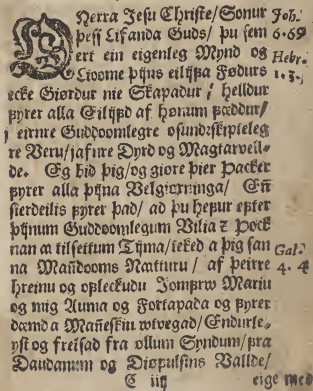 DHerra Jesu Christe/ Sonur
þess Lifanda Guds/ þu sem
ert ein eigenleg Mynd og
Lioome þijns eilijfa Fødurs
ecke Giørdur nie Skapadur/ helldur
fyrer alla Eilijfd af hønum fæddur/
i eirnre Guddoomlegre osundrskipteleg
re Veru/ jafnre Dyrd og Magtarveil-
de. Eg bid þig/ og giøre þier Packer
fyrer alla þijna Velgiørninga/ Eñ
sierdeilis fyrer þad/ ad þu hefur epter
þijnum Guddoomlegum Vilia z Pock
nan a tilsettum Tijma/ teked a þig san
na Mañdooms Nætturu/ af þeirre
hreinu og oflekudu Jomfrw Mariu
og mig Auma og Fortapada og fyrer
dæmda Mañeskiu wtvegad/ Endurle-
yst og frelsad fra øllum Syndum/ fra
Daudanum og Diøfulsins Vallde/
C iij eige med
Joh.
6-69
Hebr.
1. 3.
Gal.
4. 4